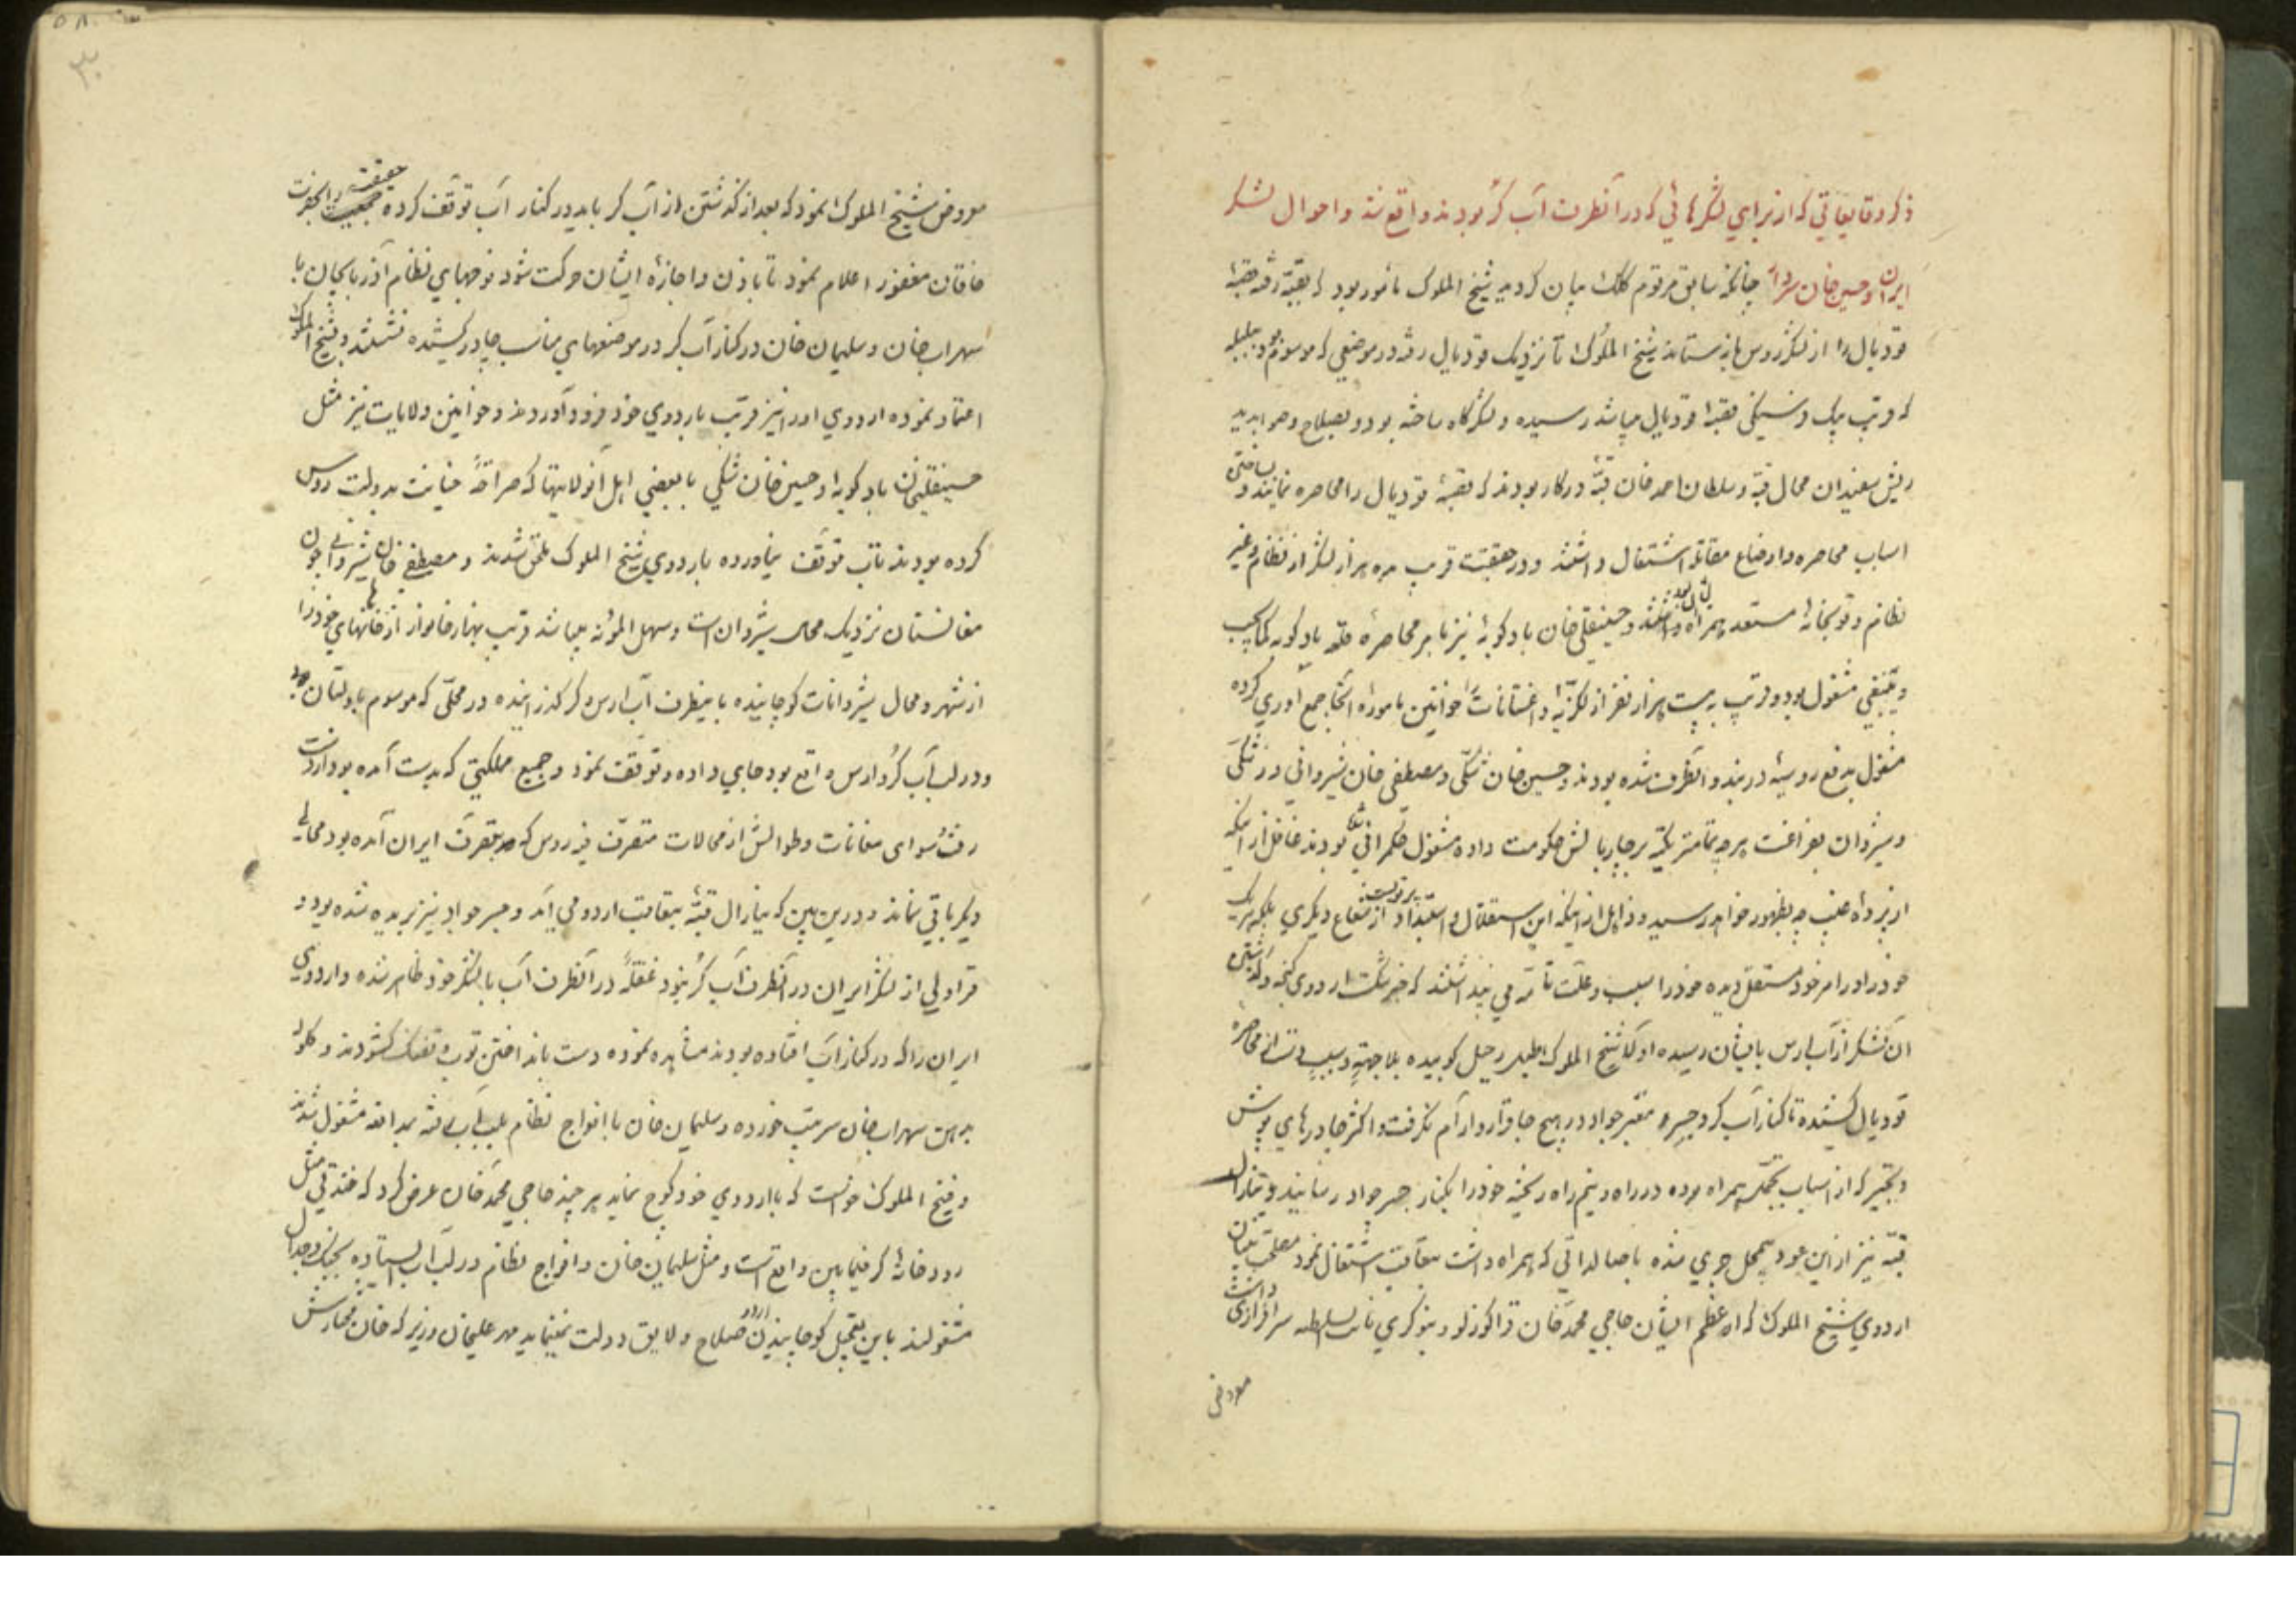 ذکر وقایعاتی که از برای لشکرهائی که در آنطرف آب کُر بودند واقع شد و احوال لشکر
ایران و حسین خان سردار چنانکه سابق مرقوم کلک بیان گردید شیخ الملوک مأمور بود که بقبّه رفته قصبهٔ
قودیال را از لشکر روس بازستاند شیخ الملوک تا نزدیک قودیال رفته در موضعی که موسوم
که قریب بیک فرسنگی قصبهٔ قودیال میباشد رسیده و لشکرگاه ساخته بود و بصلاح و صوابدید
ریش سفیدان محال قبّه و سلطان احمد خان قبّهٔ در کار بودند که قصبهٔ قودیال را محاصره نمایند و بساختن
اسباب محاصره و اوضاع مقاتله اشتغال داشتند و در حقیقت قریب ده هزار لشکر از نظام و غیر
نظام و توپخانهٔ مستعد همراه داشتند و حسینقلی خان بادکوبهٔ نیز بامر محاصرهٔ قلعه بادکوبه کماینبغی
مشغول بود و قریب به بیست هزار نفر از لکزیّه و داغستانات خوانین مامورهٔ آنجا جمع آوری کرده
مشغول بدفع روسیّه دربند و آنطرف شده بودند و حسین خان شکّی و مصطفی خان شیروانی در شکّی
و شیروان بفراغت هرچه تمامتر تکیه بر چاربالش حکومت داده مشغول حکمرانی بودند غافل از اینکه
از پردهٔ غیب چه بظهور خواهد رسید و ذاهل از اینکه این استقلال و استبداد از شعاع دیگری بلکه هریک
خود را در امر خود مستقل دیده خود را سبب و علّت تامّه می پنداشتند که خبر شکست اردوی گنجه و گذشتن
آن لشکر از آب ارس بایشان رسیده اولا شیخ الملوک طبل رحیل کوبیده بلا جهتی و سببی دست از محاصرهٔ
قودیال کشیده تا کنار آب کر و جسر و معبر جواد در هیچ جا قرار و آرام نگرفت و اکثر چادرهای
که از اسباب تجمّل همراه بوده در راه و نیم راه ریخته خود را بکنار جسر جواد رسانید و ینارال
قبّه نیز ازین عود بیمحل جری شده با صالداتی که همراه داشت بتعاقب اشتغال نمود
اردوی شیخ الملوک که اعظم ایشان حاجی محمد خان قراگوزلو و بنوکری نایب السلطنه سرافرازی داشت
معروض
معروض شیخ الملوک نمود که بعد از گذشتن از آب کر باید در کنار آب توقف کرده حقیقت را بحضرت
خاقان مغفور اعلام نمود تا باذن و اجازهٔ ایشان حرکت شود فوجهای نظام آذربایجان با
سهراب خان و سلیمان خان در کنار آب کر در موضعهای مناسب چادر کشیده نشستند و شیخ الملوک
اعتماد نموده اردوی او را نیز قریب باردوی خود فرود آوردند و خوانین ولایات نیز مثل
حسینقلیخان بادکوبه و حسین خان شکی با بعضی اهل آنولایتها که صراحةً خیانت بدولت روس
کرده بودند تاب توقف نیاورده باردوی شیخ الملوک ملحق شدند و مصطفی خان شیروانی چون
مغانستان نزدیک محال شیروان است و سهل المؤنه میباشد قریب بهزار خانوار از خانهای خود را
از شهر و محال شیروانات کوچانیده باینطرف آب ارس و کر گذرانیده در محلّی که موسوم
و در لب آب کُر و ارس واقع بود جای داده و توقف نمود و جمیع مملکتی که بدست آمده بود از دست
رفت سوای مغانات و طوالش از محالات متصرّف فیه روس که بتصرّف ایران آمده بود محالی
دیگر باقی نماند و درین بین که ینارال قبّهٔ بتعاقب اردو می آید و جسر جواد نیز بریده شده بود و
قراولی از لشکر ایران در آنطرف آب کُر نبود غفلةً در آنطرف آب با لشکر خود ظاهر شده و اردوی
ایران را که در کنار آب افتاده بودند مشاهده نموده دست بانداختن توپ و تفنگ گشودند و گلوله
بدهن سهراب خان سرتیپ خورده و سلیمان خان با افواج نظام بلب آب رفته بمدافعه مشغول شدند
و شیخ الملوک خواست که با اردوی خود کوچ نماید هر چند حاجی محمد خان عرض کرد که خندقی مثل
رودخانهٔ کر فیمابین واقع است و مثل سلیمان خان و افواج نظام در لب آب ایستاده بجنگ و جدال
مشغولند باین تعجیل کوچانیدن اردو صلاح و لایق دولت نمینماید مهر علیخان وزیر که خان